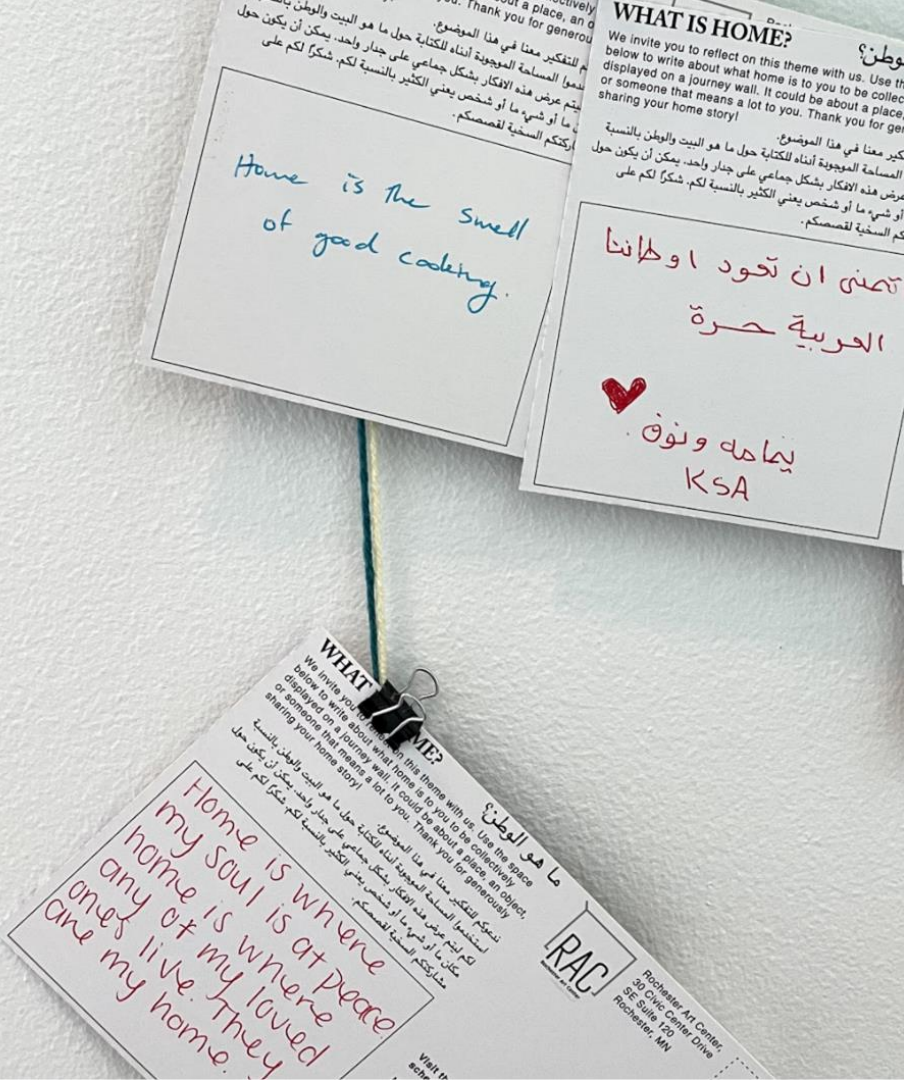 Thank you for
about a place, an o
م للتفكير معنا في هذا الموضوع.
دموا المساحة الموجودة أدناه للكتابة حول ما هو البيت والوطن
يتم عرض هذه الافكار بشكل جماعي على جدار واحد. يمكن أن يكون حول
ما أو شيء ما أو شخص يعني الكثير بالنسبة لكم. شكرًا لكم على
اركتكم السخية لقصصكم.
Home is the smell
of good cooking.
WHAT IS HOME?
We invite you to reflect on this theme with us. Use th
below to write about what home is to you to be collec
displayed on a journey wall. It could be about a place,
or someone that means a lot to you. Thank you for gen
sharing your home story!
كير معنا في هذا الموضوع.
المساحة الموجودة أدناه للكتابة حول ما هو البيت والوطن بالنسبة
عرض هذه الافكار بشكل جماعي على جدار واحد. يمكن أن يكون حول
أو شيء ما أو شخص يعني الكثير بالنسبة لكم. شكرًا لكم على
كم السخية لقصصكم.
تمنى ان تعود اوطاننا
العربية حرة
يمامه ونوف
KSA
WHAT ME?
We invite you to reflect on this theme with us. Use the space
below to write about what home is to you to be collectively
displayed on a journey wall. It could be about a place, an object,
or someone that means a lot to you. Thank you for generously
sharing your home story!
ما هو الوطن؟
ندعوكم للتفكير معنا في هذا الموضوع.
استخدموا المساحة الموجودة أدناه للكتابة حول ما هو البيت والوطن بالنسبة
لكم ليتم عرض هذه الافكار بشكل جماعي على جدار واحد. يمكن أن يكون حول
مكان ما أو شيء ما أو شخص يعني الكثير بالنسبة لكم. شكرًا لكم على
مشاركتكم السخية لقصصكم.
Home is where
my soul is at peace.
home is where
any of my loved
ones live. They
are my home.
RAC
ROCHESTER ART CENTER
Rochester Art Center,
30 Civic Center Drive
SE Suite 120
Rochester, MN
Visit th